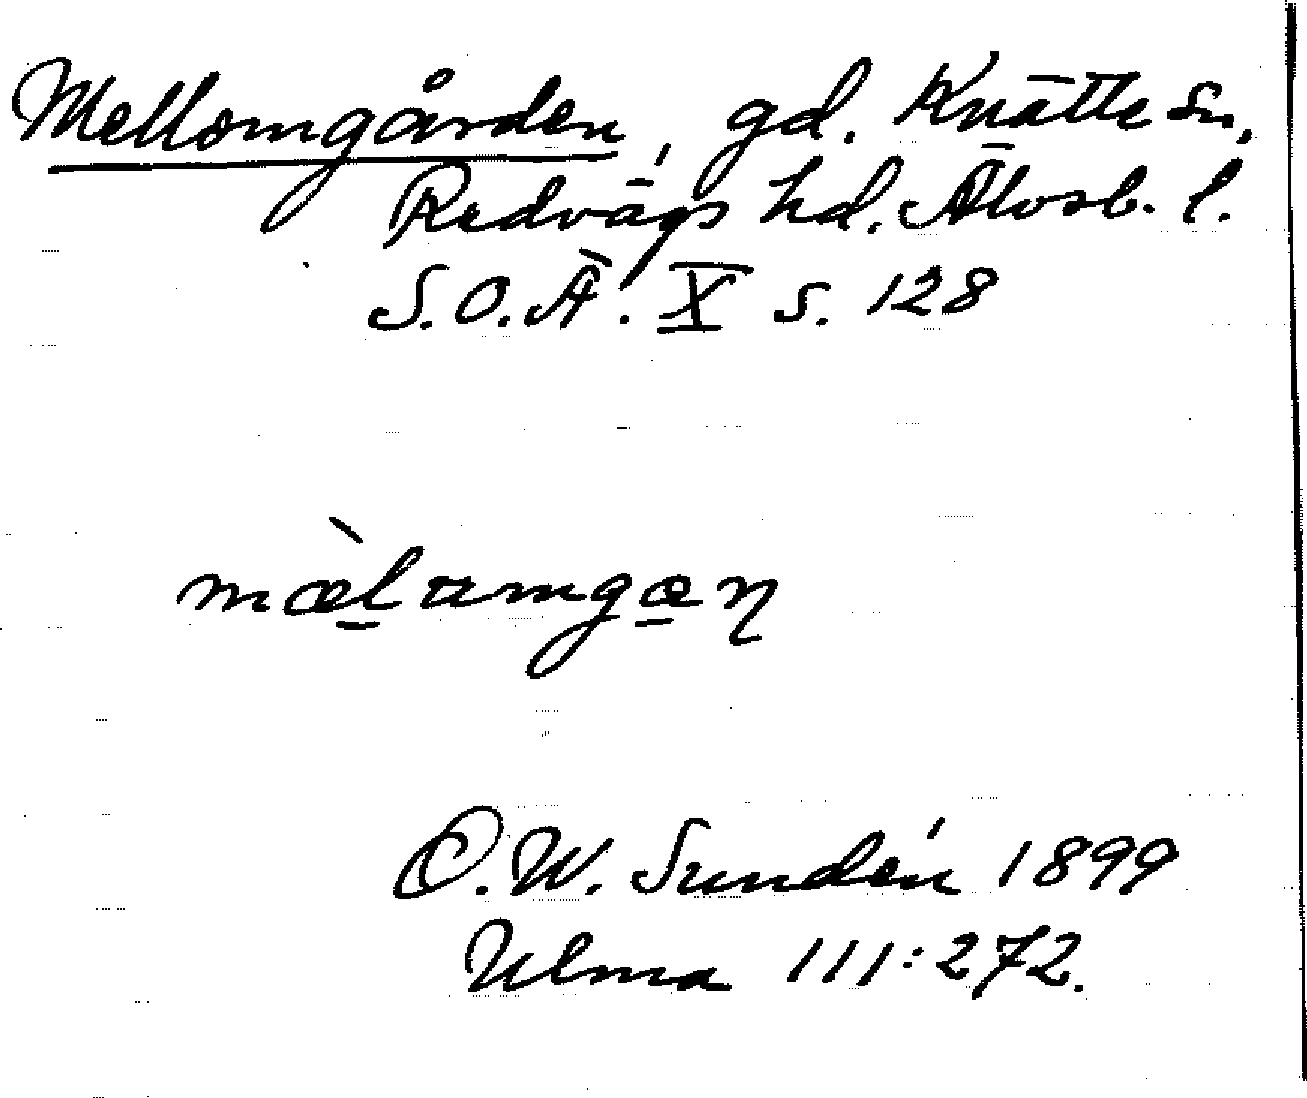 Mellomgården, gd. Knätte sn,
Redvägs hd. Älvsb. l.
S.O.Ä. X s. 128
mæ̀l amgæn
D.W. Sundén 1899
Ulma 111:272.